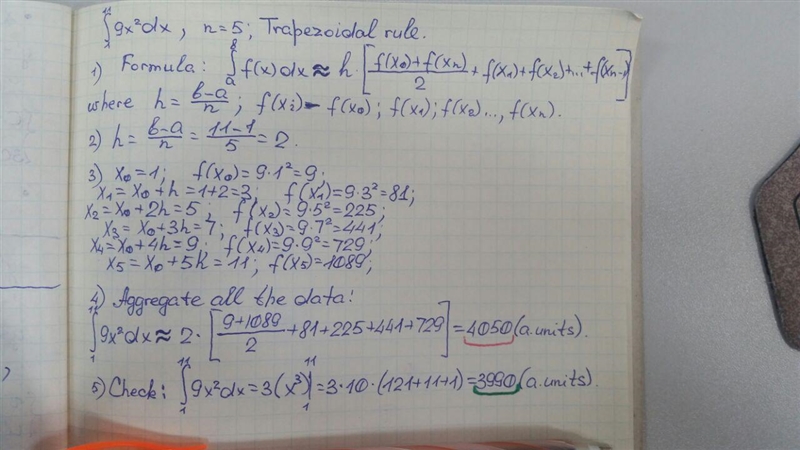 ∫₁¹¹ 9x²dx, n=5; Trapezoidal rule.
1) Formula: ∫ₐᵇ f(x)dx ≈ h·[(f(x₀)+f(xₙ))/2 + f(x₁)+f(x₂)+...+f(xₙ₋₁)]
where h = (b-a)/n; f(xᵢ) - f(x₀); f(x₁); f(x₂)..., f(xₙ).
2) h = (b-a)/n = (11-1)/5 = 2.
3) x₀=1; f(x₀)=9·1²=9;
x₁=x₀+h=1+2=3; f(x₁)=9·3²=81;
x₂=x₀+2h=5; f(x₂)=9·5²=225;
x₃=x₀+3h=7; f(x₃)=9·7²=441;
x₄=x₀+4h=9; f(x₄)=9·9²=729;
x₅=x₀+5h=11; f(x₅)=1089;
4) Aggregate all the data:
∫₁¹¹ 9x²dx ≈ 2·[(9+1089)/2 + 81+225+441+729] = 4050 (a.units).
5) Check: ∫₁¹¹ 9x²dx = 3(x³)|₁¹¹ = 3·10·(121+11+1) = 3990 (a.units).